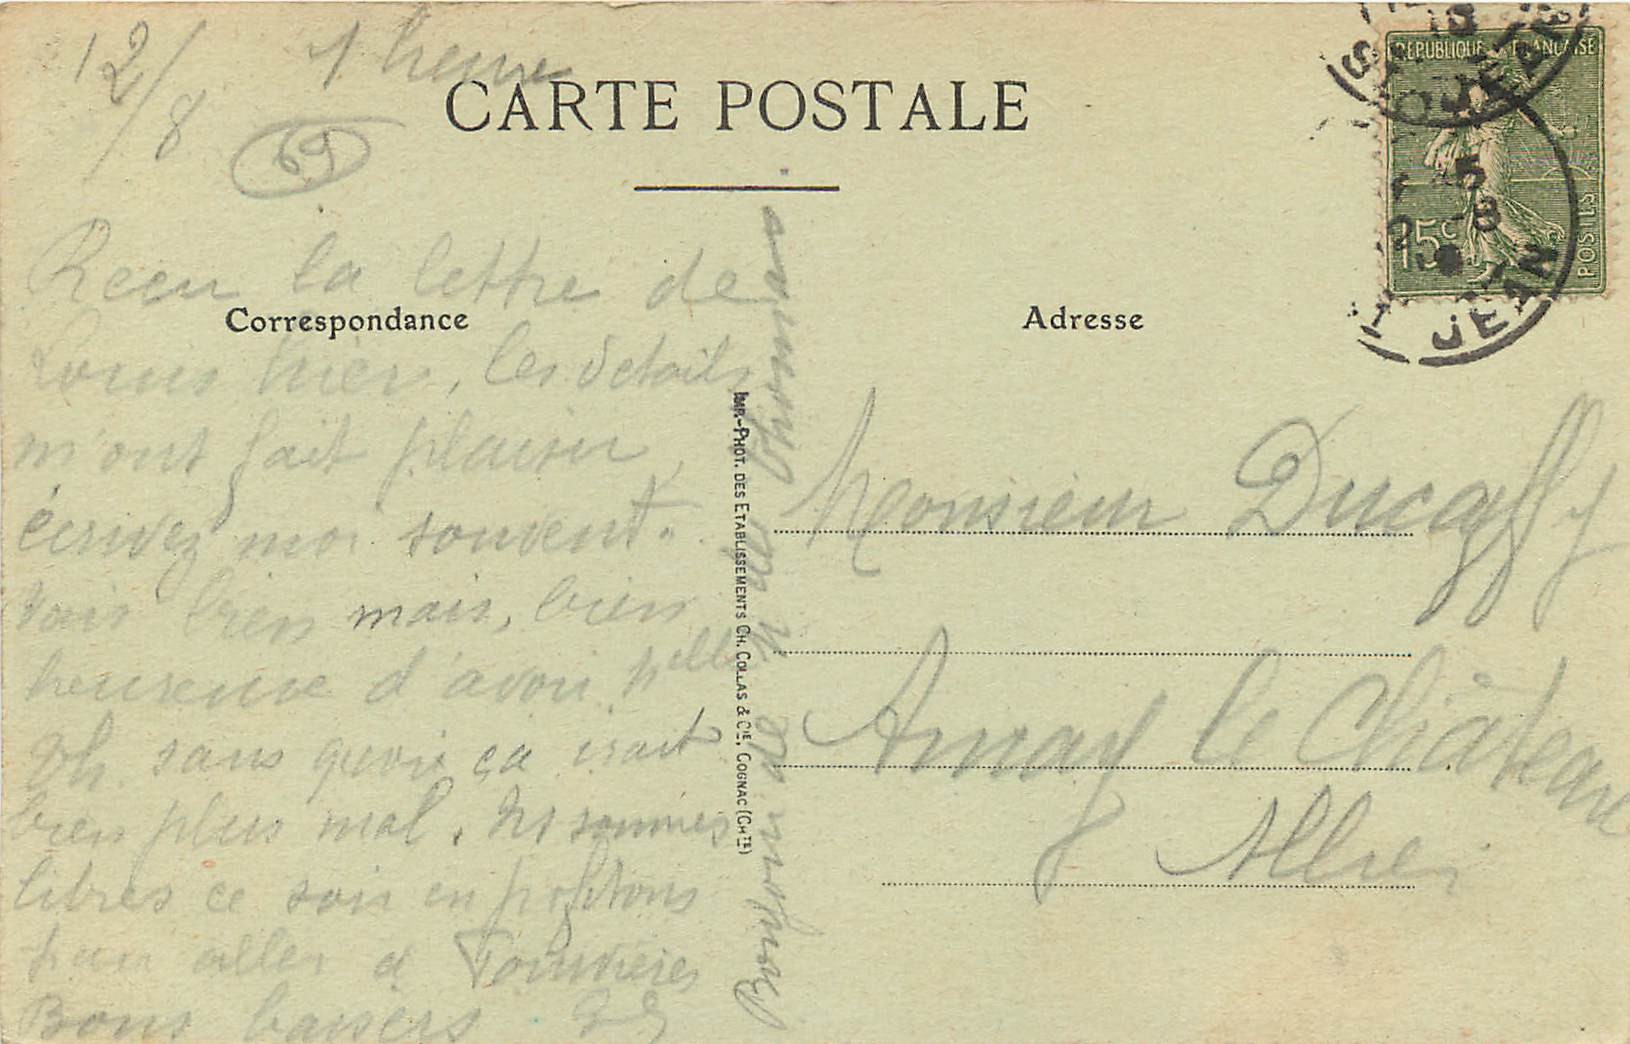 12/8
1 heure
CARTE POSTALE
69
Recu la lettre de
Correspondance
Louis hier, les détails
m'ont fait plaisir,
écrivez moi souvent.
Vais bien mais, bien
heureuse d'avoir nlle
sans quoi ça irait
bien plus mal. Ns sommes
libres ce soir en profitons
pour aller à
Bons baisers
Bonjour de M et Me
IMP.-PHOT. DES ETABLISSEMENTS CH. COLLAS & CIE, COGNAC (CHTE)
RÉPUBLIQUE FRANÇAISE
15c
POSTES
JEAN
Adresse
Monsieur Ducaffy
Arnay le Château
Allier